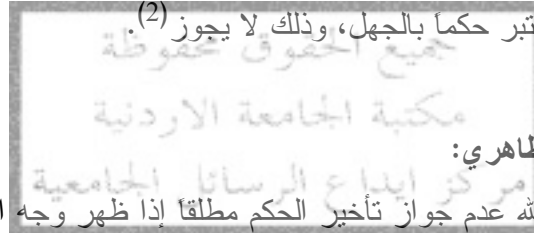 تبر حكماً بالجهل، وذلك لا يجوز(2).
جميع الحقوق محفوظة
مكتبة الجامعة الاردنية
ظاهري:
مركز ايداع الرسائل الجامعية
لله عدم جواز تأخير الحكم مطلقاً إذا ظهر وجه ا